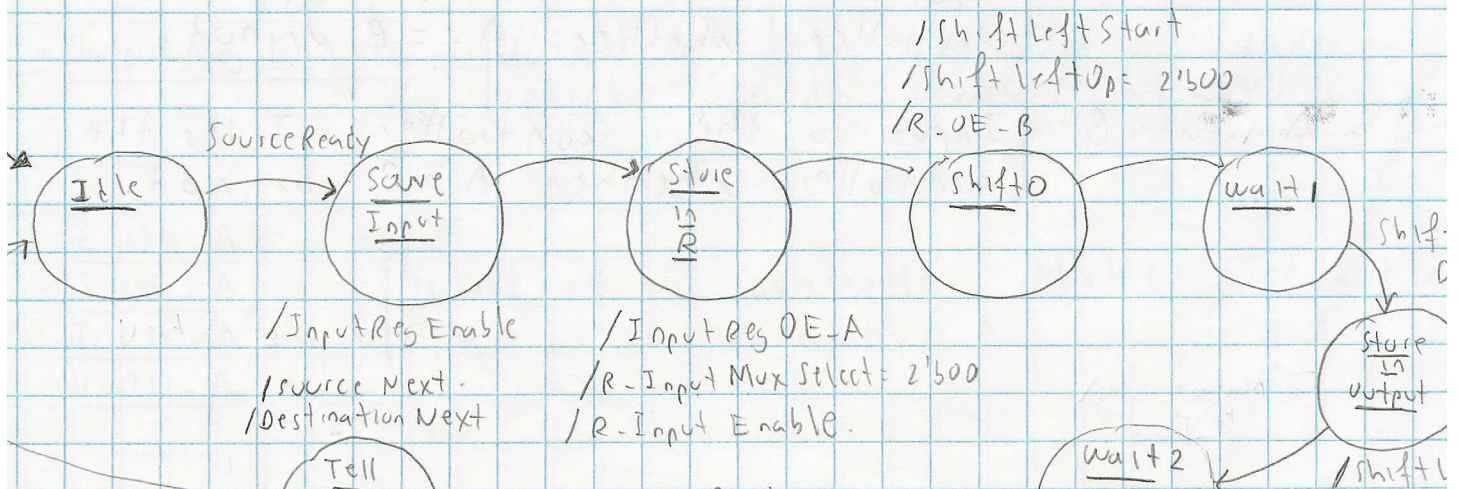 /ShiftLeftStart
/ShiftLeftOp= 2'b00
/R_OE_B
SourceReady
Idle
Save
Input
Store
in
R
Shift0
Wait1
Shif
/InputRegEnable
/Source Next
/Destination Next
/InputRegOE_A
/R-InputMuxSelect= 2'b00
/R-Input Enable
Store
in
output
Tell
Wait2
/ShiftL